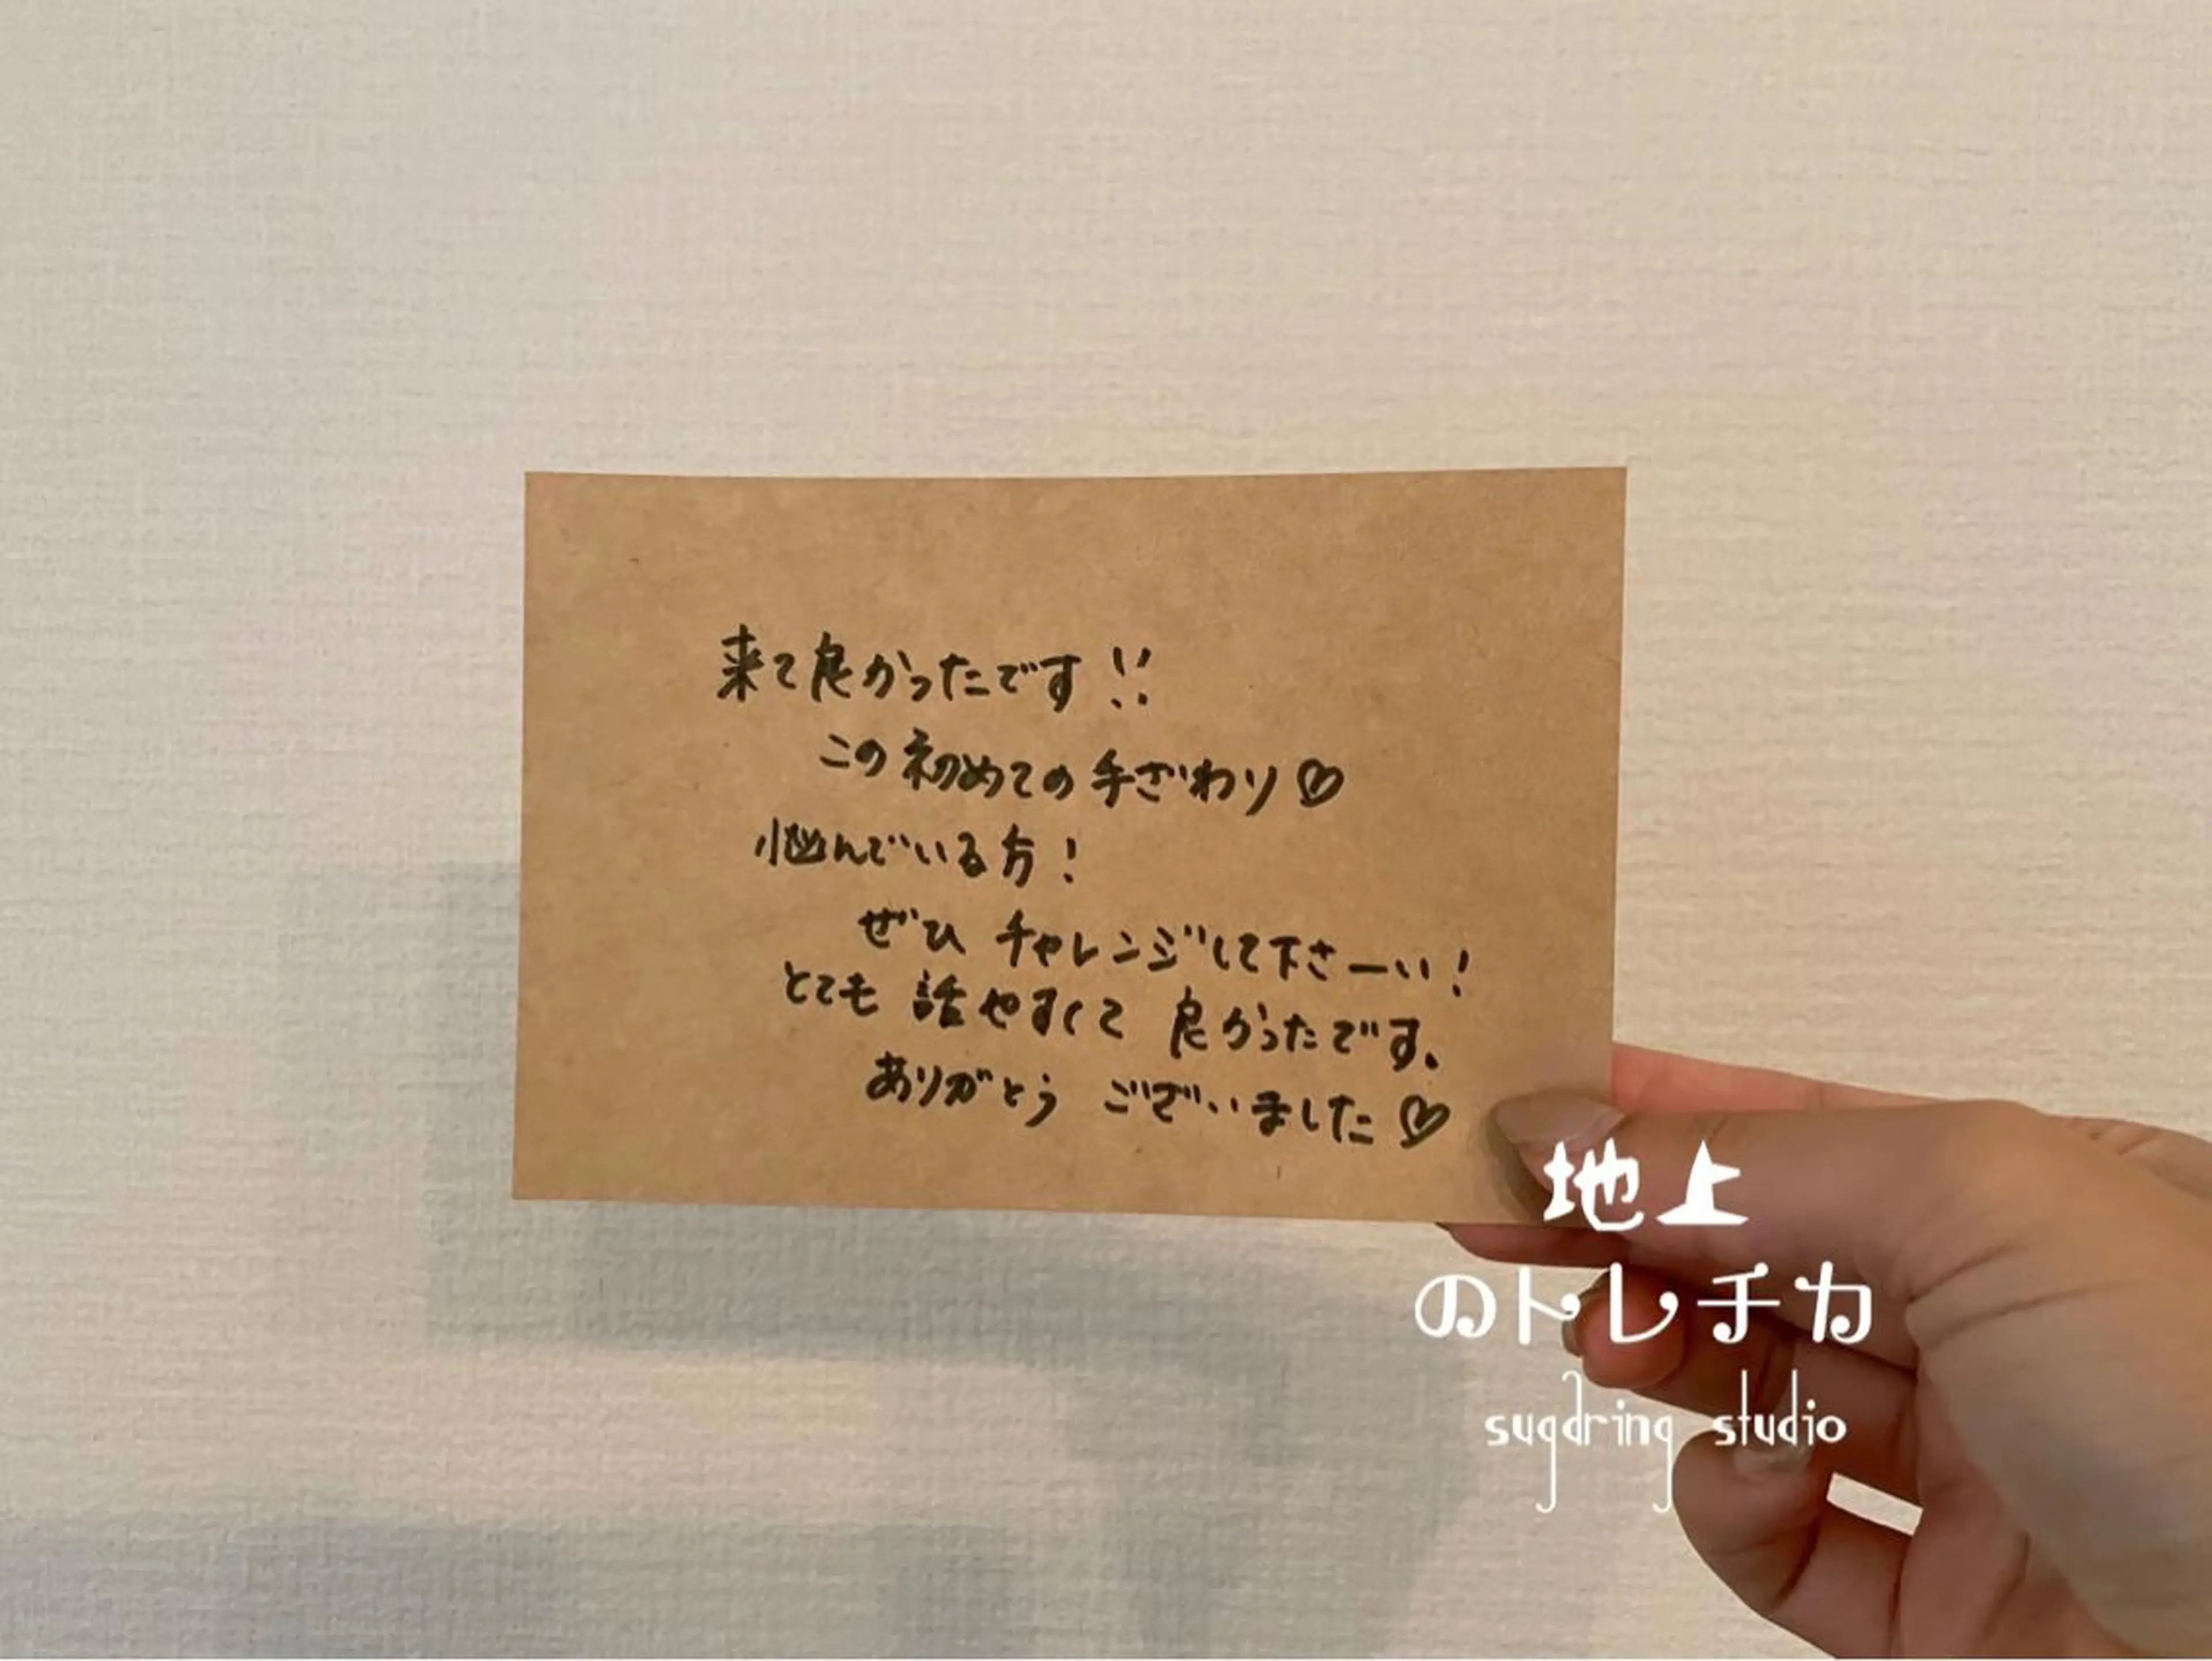 来て良かったです!!
この初めての手ざわり♡
悩んでいる方!
ぜひ チャレンジして下さーい!
とても 話やすくて 良かったです。
ありがとう ございました♡
地上
のトレチカ
sugaring studio